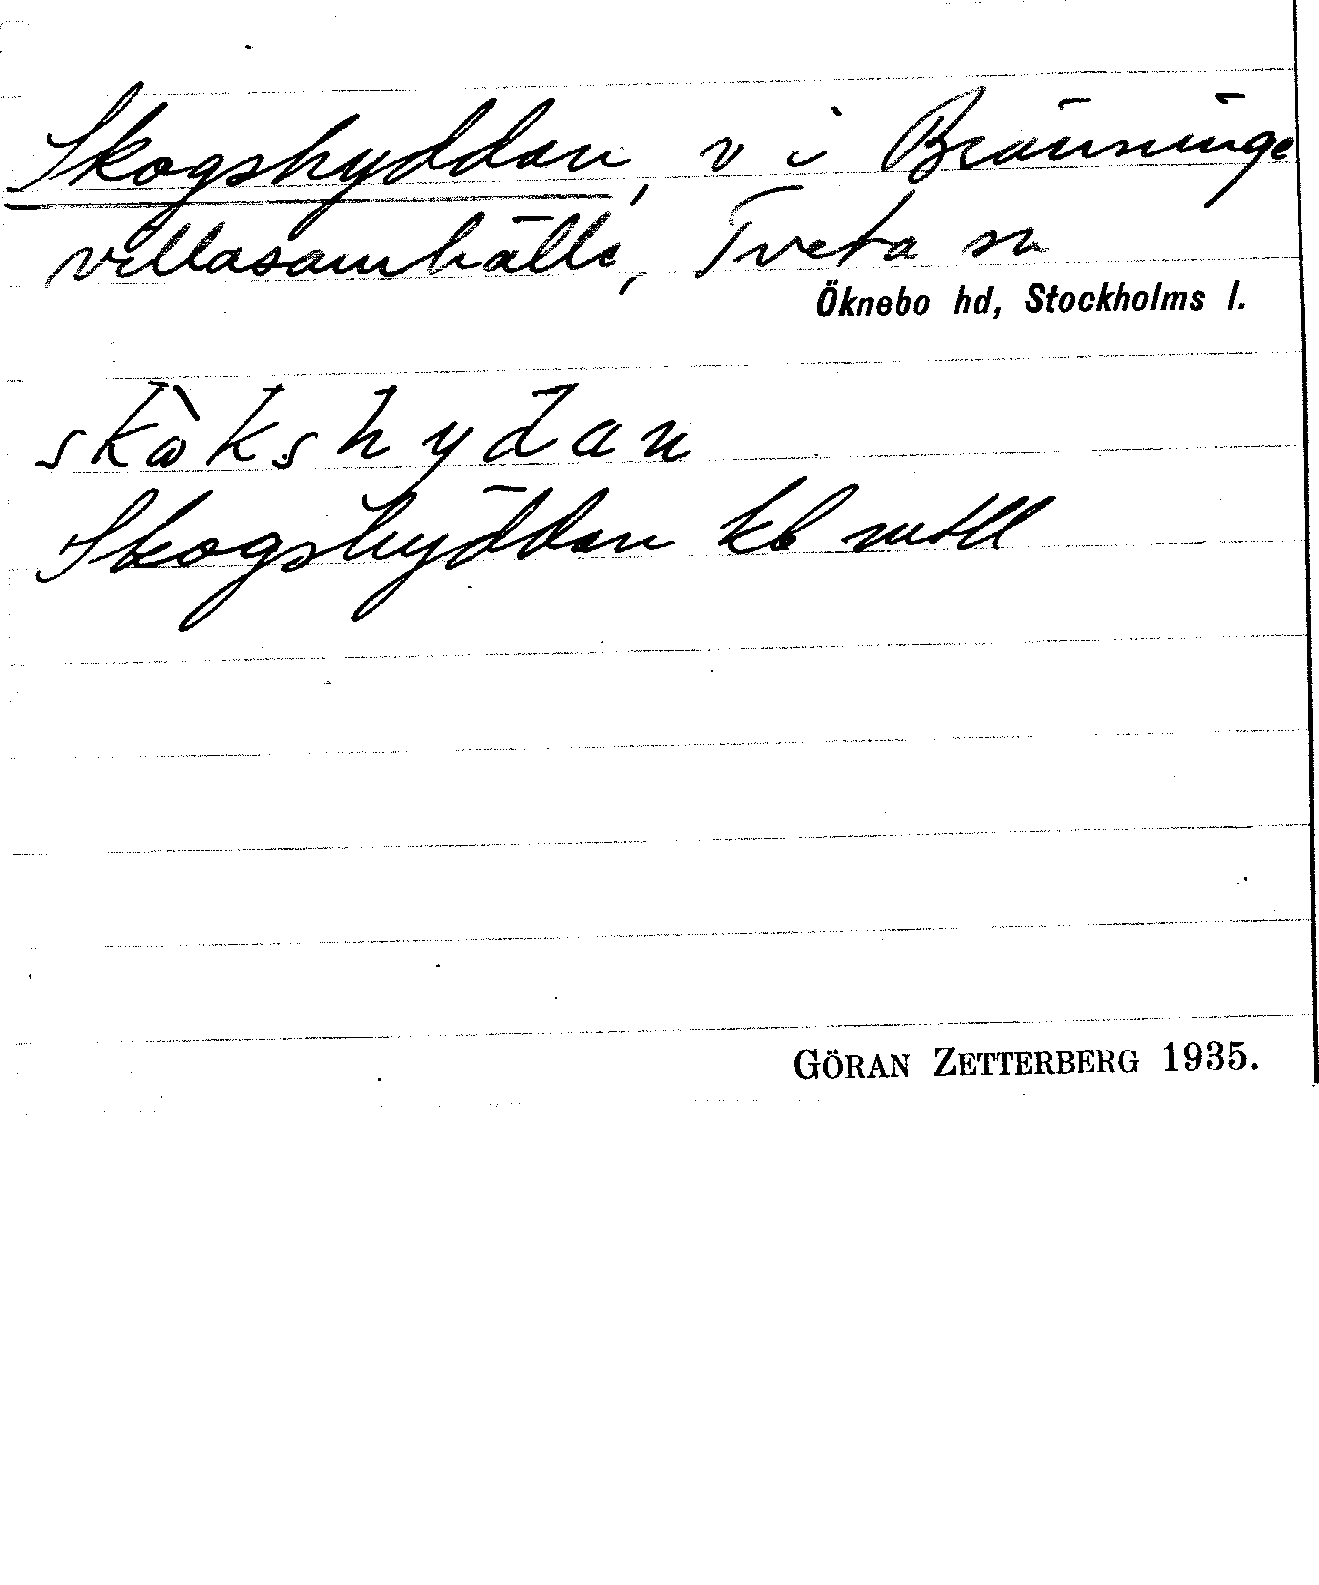 Skogshyddan, v i Bränninge
villasamhälle, Tveta sn
Öknebo hd, Stockholms l.
skòkshydan
Skogshyddan kb
GÖRAN ZETTERBERG 1935.